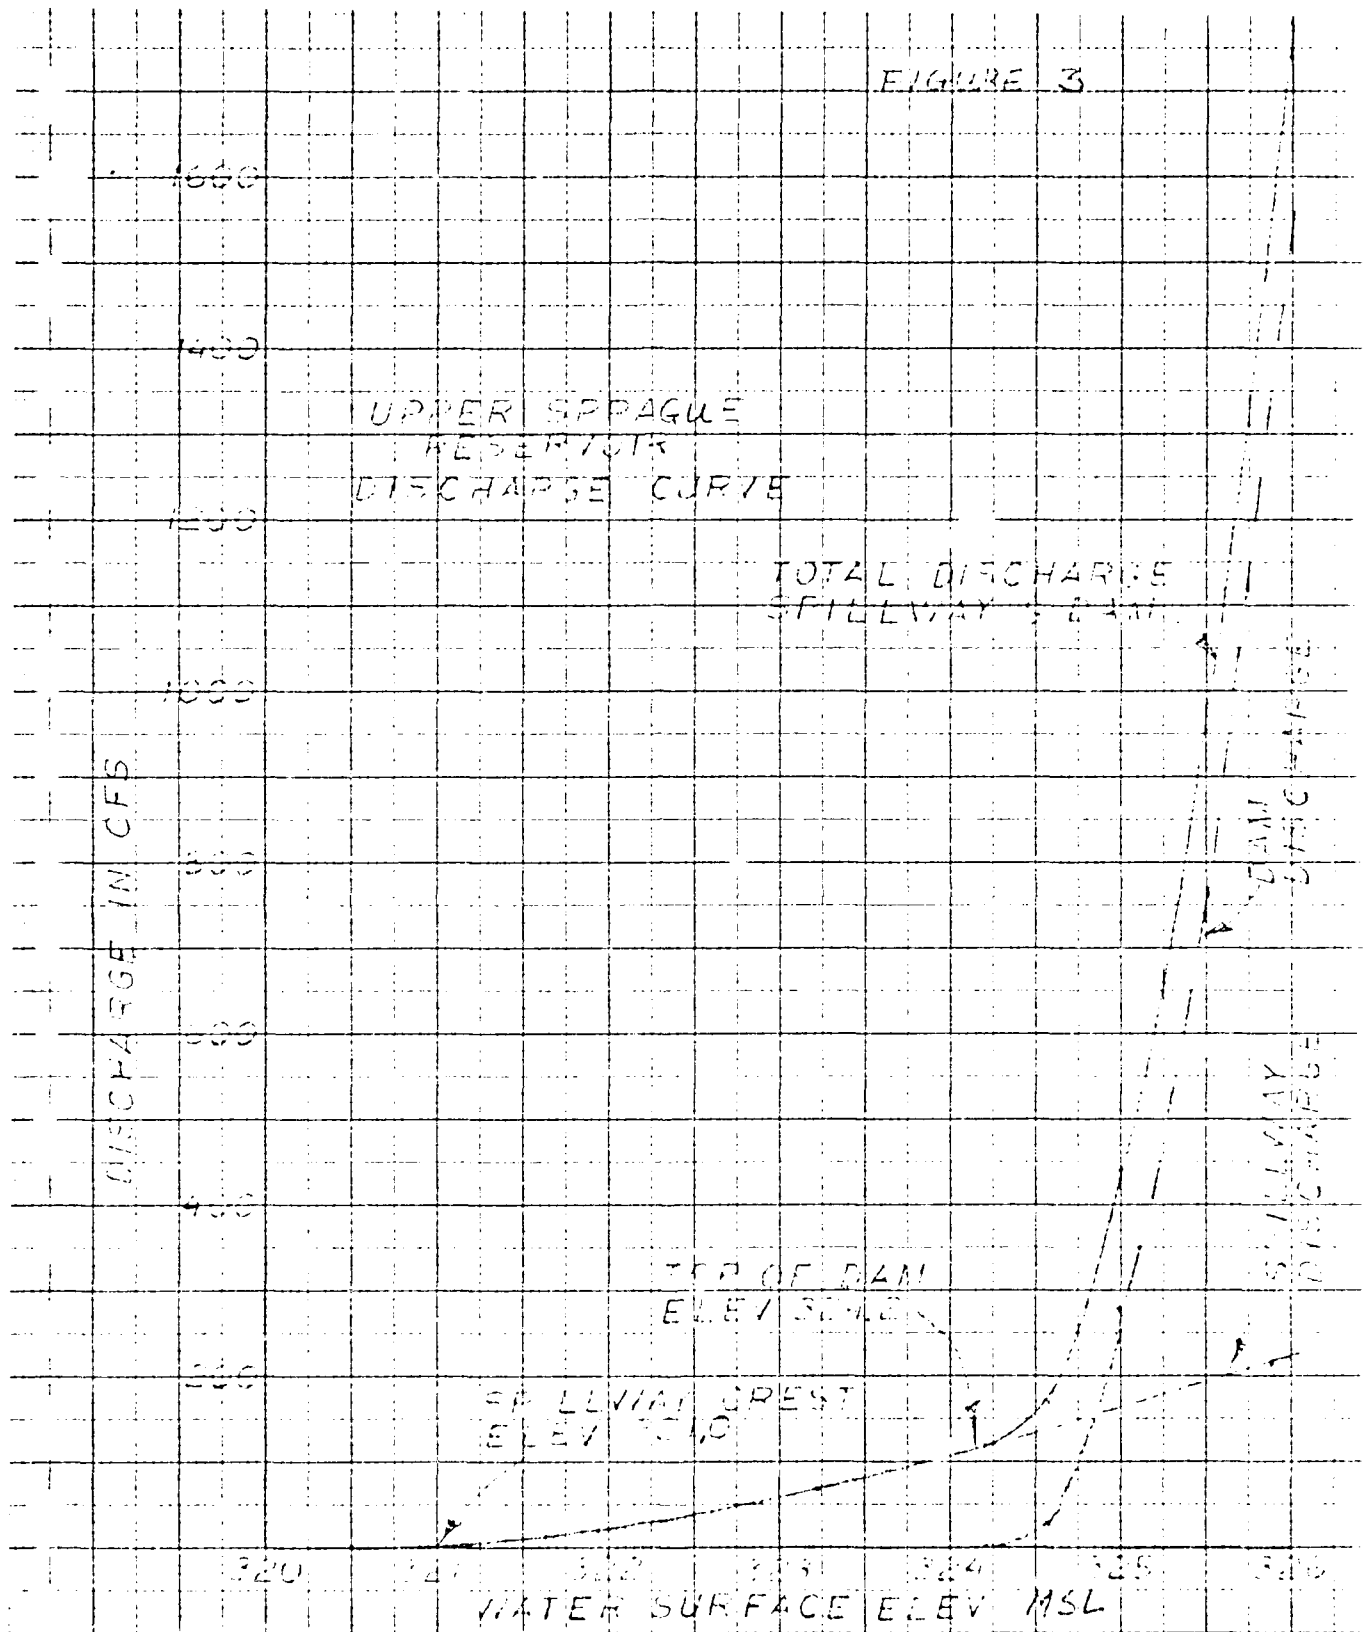 FIGURE 3
1600
1400
UPPER SPRAGUE
RESERVOIR
DISCHARGE CURVE
1200
TOTAL DISCHARGE
SPILLWAY & DAM
1000
DAM
DISCHARGE
DISCHARGE IN CFS
800
600
SPILLWAY
DISCHARGE
400
TOP OF DAM
ELEV
200
SPILLWAY CREST
ELEV 321.0
320 321 322 323 324 325 326
WATER SURFACE ELEV MSL